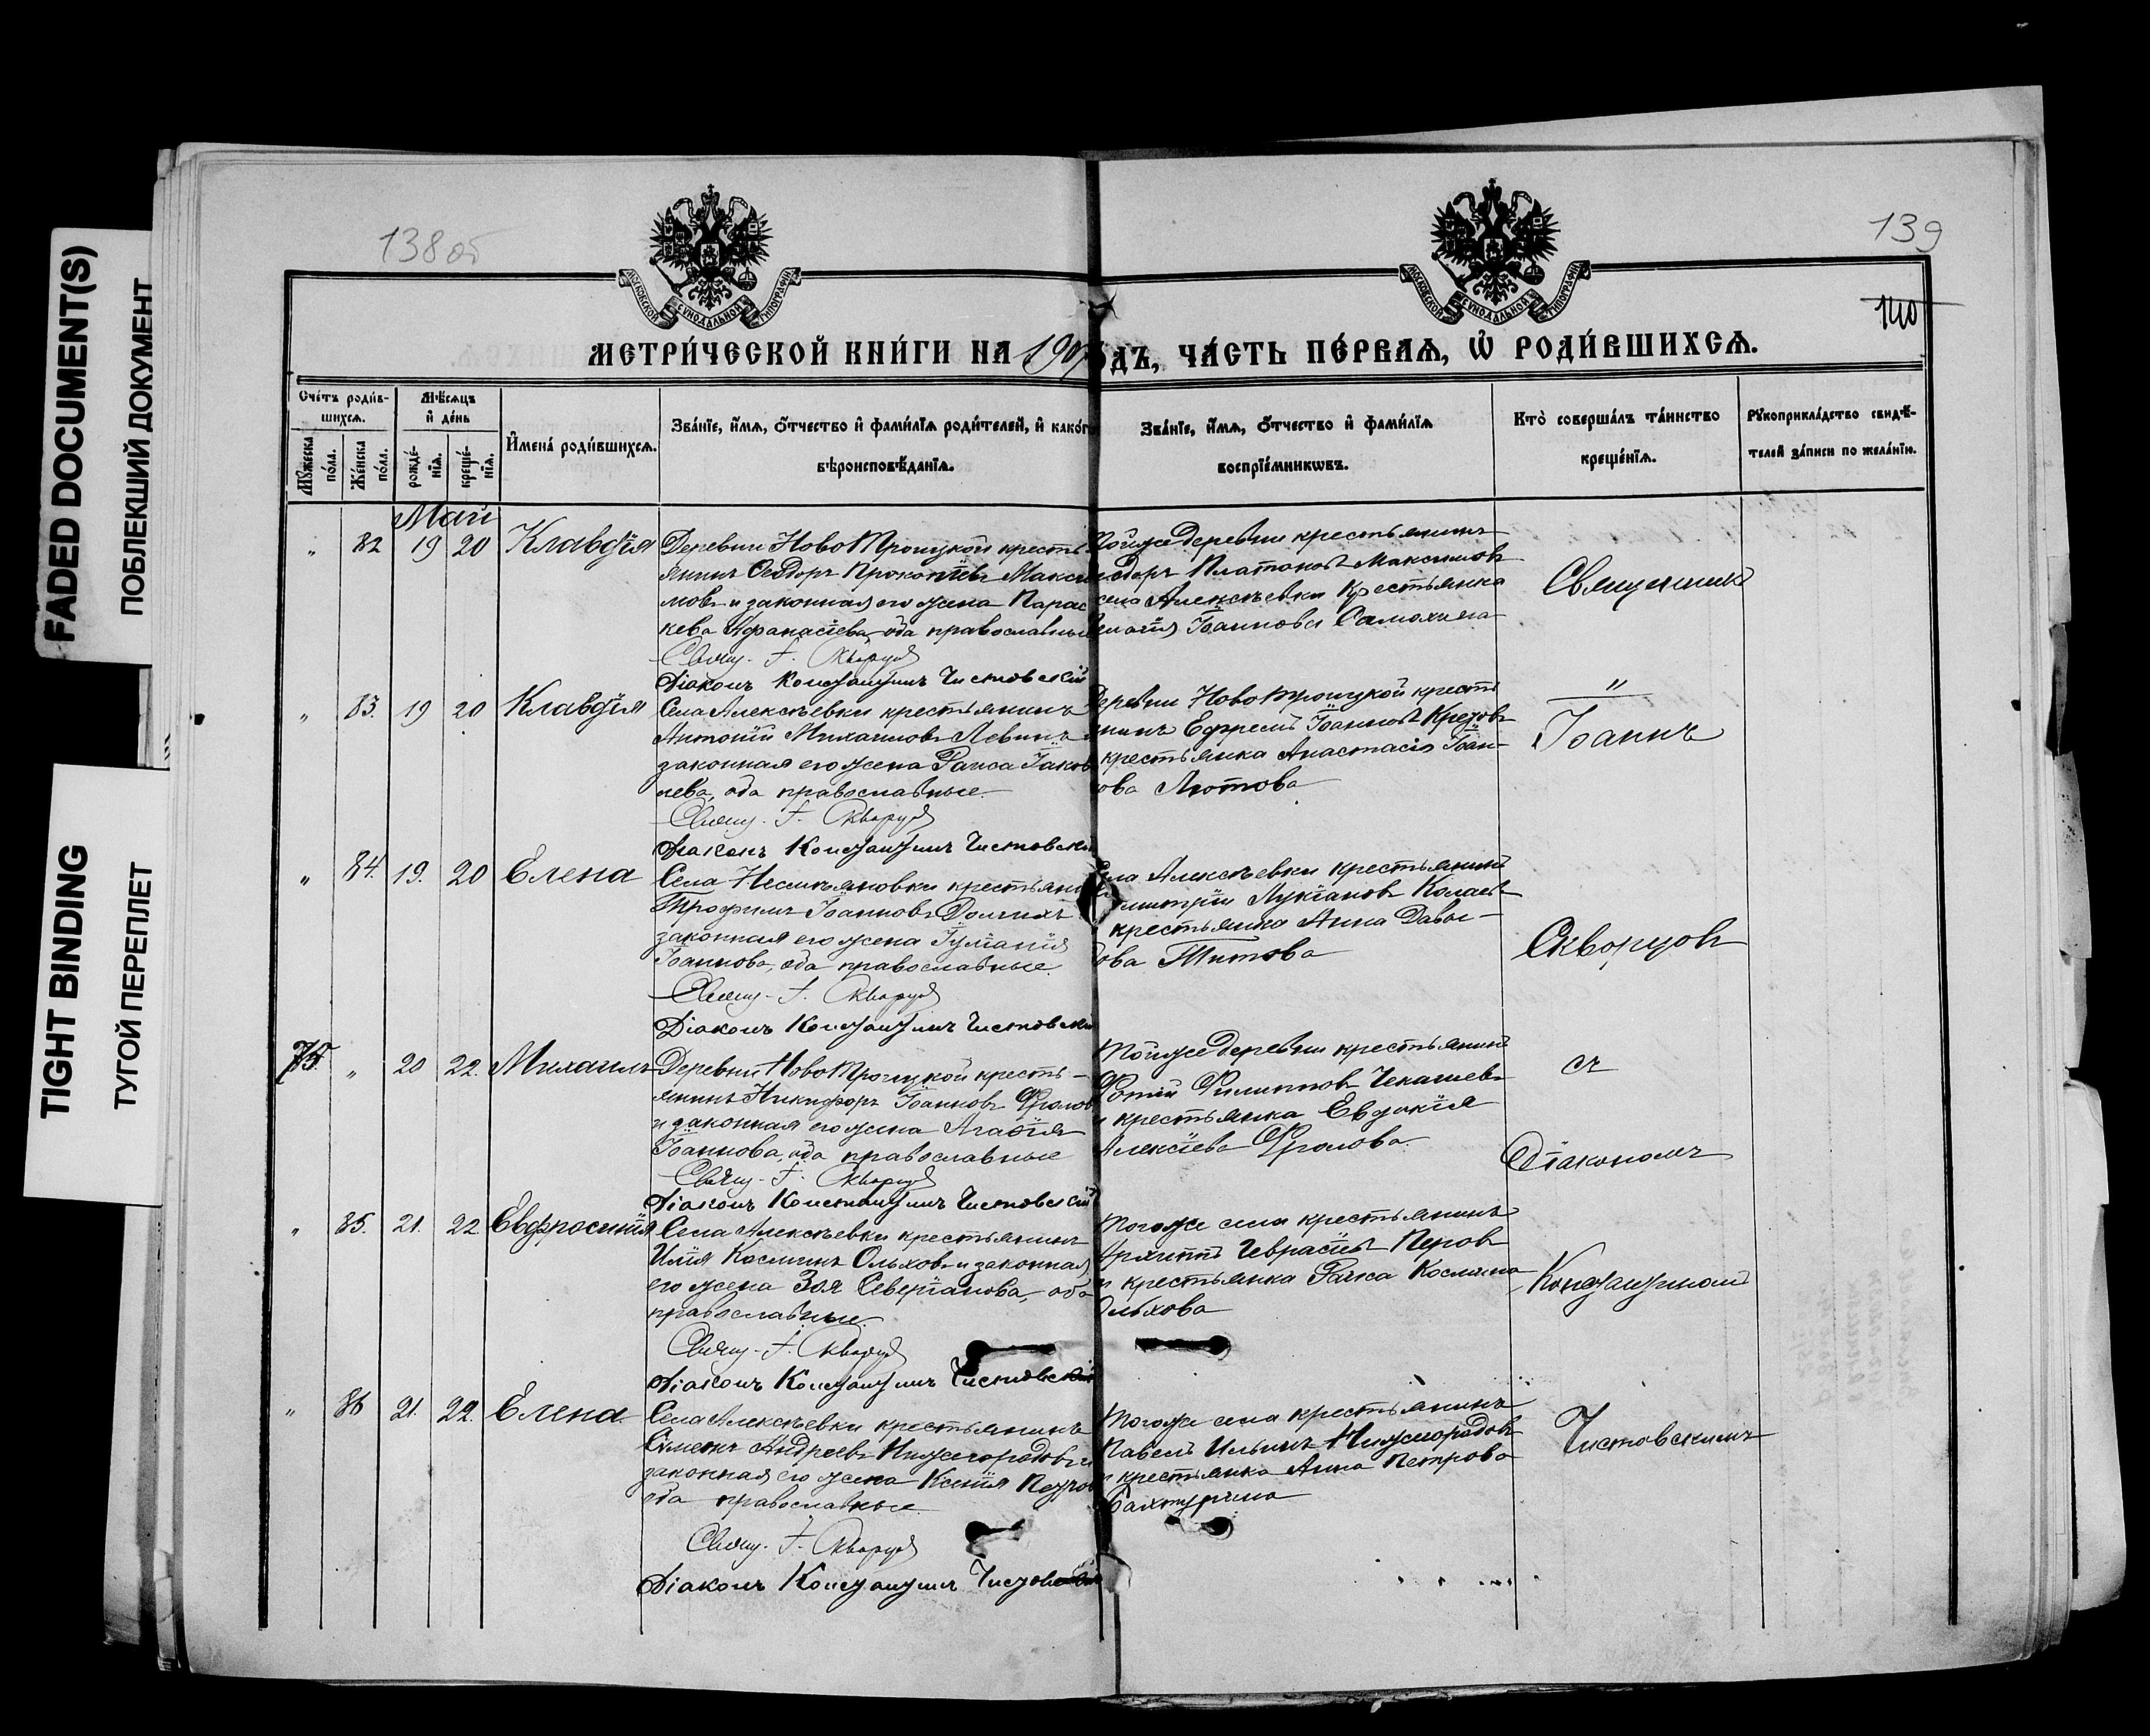 FADED DOCUMENT(S)
ПОБЛЕКШИЙ ДОКУМЕНТ
TIGHT BINDING
ТУГОЙ ПЕРЕПЛЕТ
138 об
139
140
МОСКОВСКОЙ СУНОДАЛЬНОЙ ТИПОГРАФІИ
МОСКОВСКОЙ СУНОДАЛЬНОЙ ТИПОГРАФІИ
МЕТРИ́ЧЕСКОЙ КНИ́ГИ НА 1907 ГОДЪ, ЧА́СТЬ ПЕ́РВАѦ, Ѡ РОДИ́ВШИХСѦ.
Сче́тъ роди́в-
шихсѧ.
Мꙋ́жеска по́ла.
Же́нска по́ла.
Мѣ́сѧцъ
и҆ де́нь
рожде́-
нїѧ.
креще́-
нїѧ.
И҆мена̀ роди́вшихсѧ.
Зва́нїе, и҆́мѧ, ѻ҆́тчество и҆ фами́лїѧ роди́телей, и҆ како́гѡ
вѣроисповѣ́данїѧ.
Зва́нїе, и҆́мѧ, ѻ҆́тчество и҆ фами́лїѧ
воспрїе́мникѡвъ.
Кто̀ соверша́лъ та́инство
креще́нїѧ.
Рꙋкоприкла́дство свидѣ́-
телей за́писи по жела́нїю.
Май
„ 82 19 20 Клавдія
Деревни НовоТроицкой кресть
янинъ Ѳеодоръ Прокопіевъ Макси
мовъ и законная его жена Парас
кева Афанасіева, оба православные
Свящ. І. Скворцов
Діаконъ Константинъ Чистовскій
Тойже деревни крестьянинъ
Платоновъ Максимовъ
села Алексѣевки крестьянка
Іоаннова Самохина
Священникъ
„ 83. 19 20 Клавдія
Села Алексѣевки крестьянинъ
Антоній Михаиловъ Левинъ и
законная его жена Раиса Іаков
лева, оба православные.
Свящ. І. Скворцов
Діаконъ Константинъ Чистовскій
Деревни НовоТроицкой кресть
янинъ Ефремъ Іоанновъ
крестьянка Анастасія Іоан-
ова Лютова
„
Іоаннъ
„ 84. 19. 20 Елена
Села крестьянинъ
Трофимъ Іоанновъ Долгихъ
законная его жена Іуліанія
Іоаннова, оба православные.
Свящ. І. Скворцов
Діаконъ Константинъ Чистовскій
Села Алексѣевки крестьянинъ
Димитрій Лукіановъ
крестьянка Анна Давы-
дова Титова
Скворцовъ
75. „ 20 22. Михаилъ
Деревни НовоТроицкой кресть-
янинъ Никифоръ Іоанновъ Фролов
и законная его жена Агафія
Іоаннова, оба православные
Свящ. І. Скворцов
Діаконъ Константинъ Чистовскій
Тойже деревни крестьянинъ
Фотій Филипповъ
и крестьянка Евдокія
Алексіева Фролова.
съ
Діакономъ
„ 85. 21. 22 Евфросинія
Села Алексѣевки крестьянинъ
Илія Косминъ Ольховъ и законная
его жена Зоя Северіанова, оба
православные.
Свящ. І. Скворцов
Діаконъ Константинъ Чистовскій
Тогоже села крестьянинъ
Архиппъ Перовъ
и крестьянка Раиса Космина
Ольхова
Константиномъ
„ 86 21. 22. Елена
Села Алексѣевки крестьянинъ
Симеонъ Андреевъ Нижегородовъ и
законная его жена Ксенія Петров
оба православные.
Свящ. І. Скворцов
Діаконъ Константинъ Чистовскій
Тогоже села крестьянинъ
Павелъ Ильинъ Нижегородовъ
и крестьянка Анна Петрова
Бахтурина
Чистовскимъ